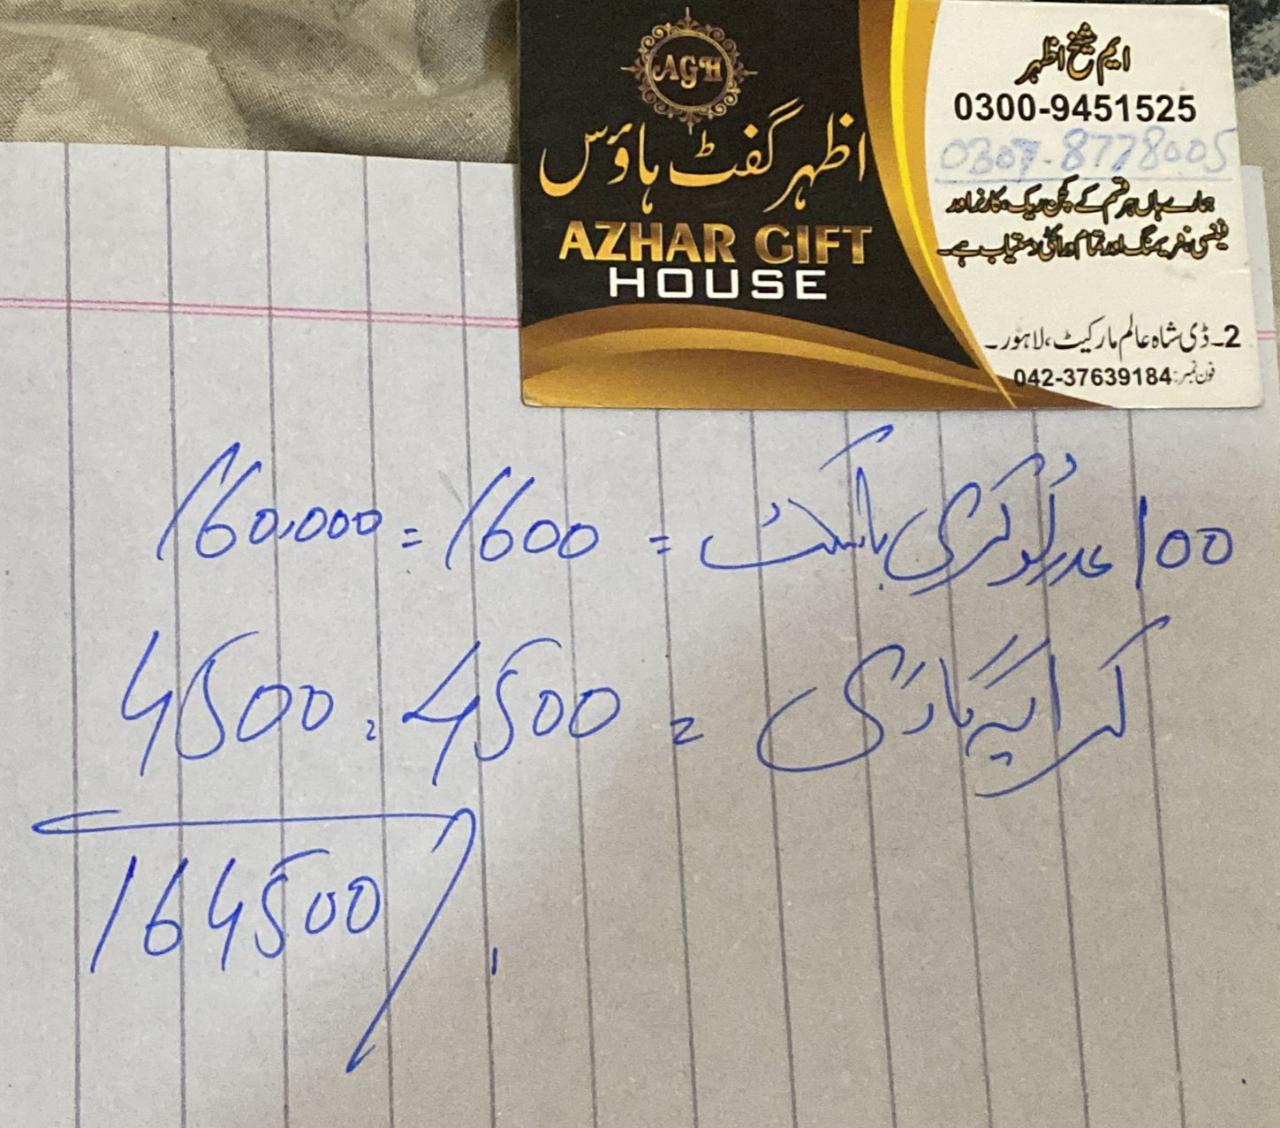 AGH
اظہر گفٹ ہاؤس
AZHAR GIFT
HOUSE
ایم شیخ اظہر
0300-9451525
0307-8778005
ہمارے ہاں ہر قسم کے کچن ریک، کارنر اور
فینسی فریمنگ اور تمام ورائٹی دستیاب ہے۔
2۔ڈی شاہ عالم مارکیٹ، لاہور۔
فون نمبر: 042-37639184
100 عدد ٹوکری باسکٹ = 1600 = 160,000
کرایہ گاڑی = 4500 = 4500
164500/